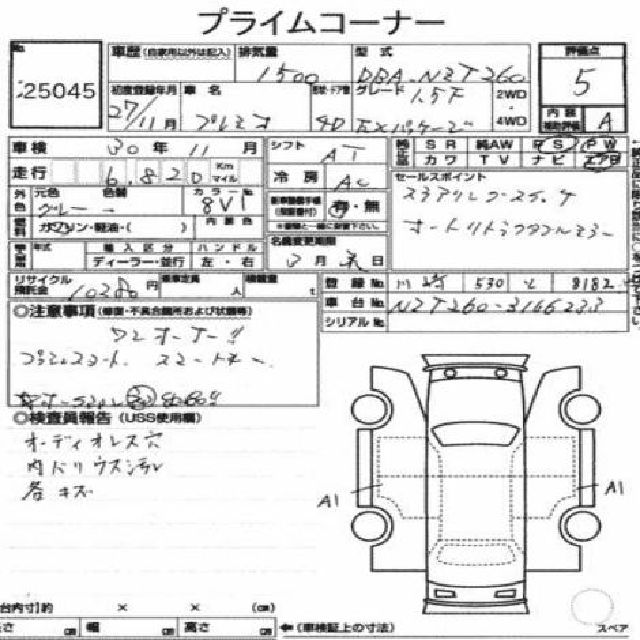 プライムコーナー
No. 25045
車歴 (自家用以外は記入) 排気量 1500 型式 DBA-NZT260 評価点 5
初度登録年月 27/11月 車名 プレミオ 形状・ドア数 4D グレード 1.5F EXパッケージ 2WD 4WD
内装補助評価 A
車検 30年 11月 シフト AT SR 純AW PS PW
カワ TV ナビ エアB
走行 6,820 Km マイル 冷房 AC セールスポイント
元色 色替 カラーNo. 8V1 有・無 ステアリングスイッチ
グレー 内装色 オートリトラクタブルミラー
燃料 ガソリン・軽油・( )
年式 輸入区分 ハンドル 名義変更期限
ディーラー・並行 左・右 3月 末日
リサイクル預託金 10280円 乗車定員 人 積載量 t 登録No. 川崎 530 8182
車台No. NZT260-3166233
シリアルNo.
◎注意事項 (修復・不具合箇所および状態等)
ワンオーナー
スマートキー
◎検査員報告 (USS使用欄)
オーディオレス穴
内ドリウス汚レ
各キズ
A1 A1
台内寸】約 × × (cm)
長さ cm 幅 cm 高さ cm ←(車検証上の寸法) スペア